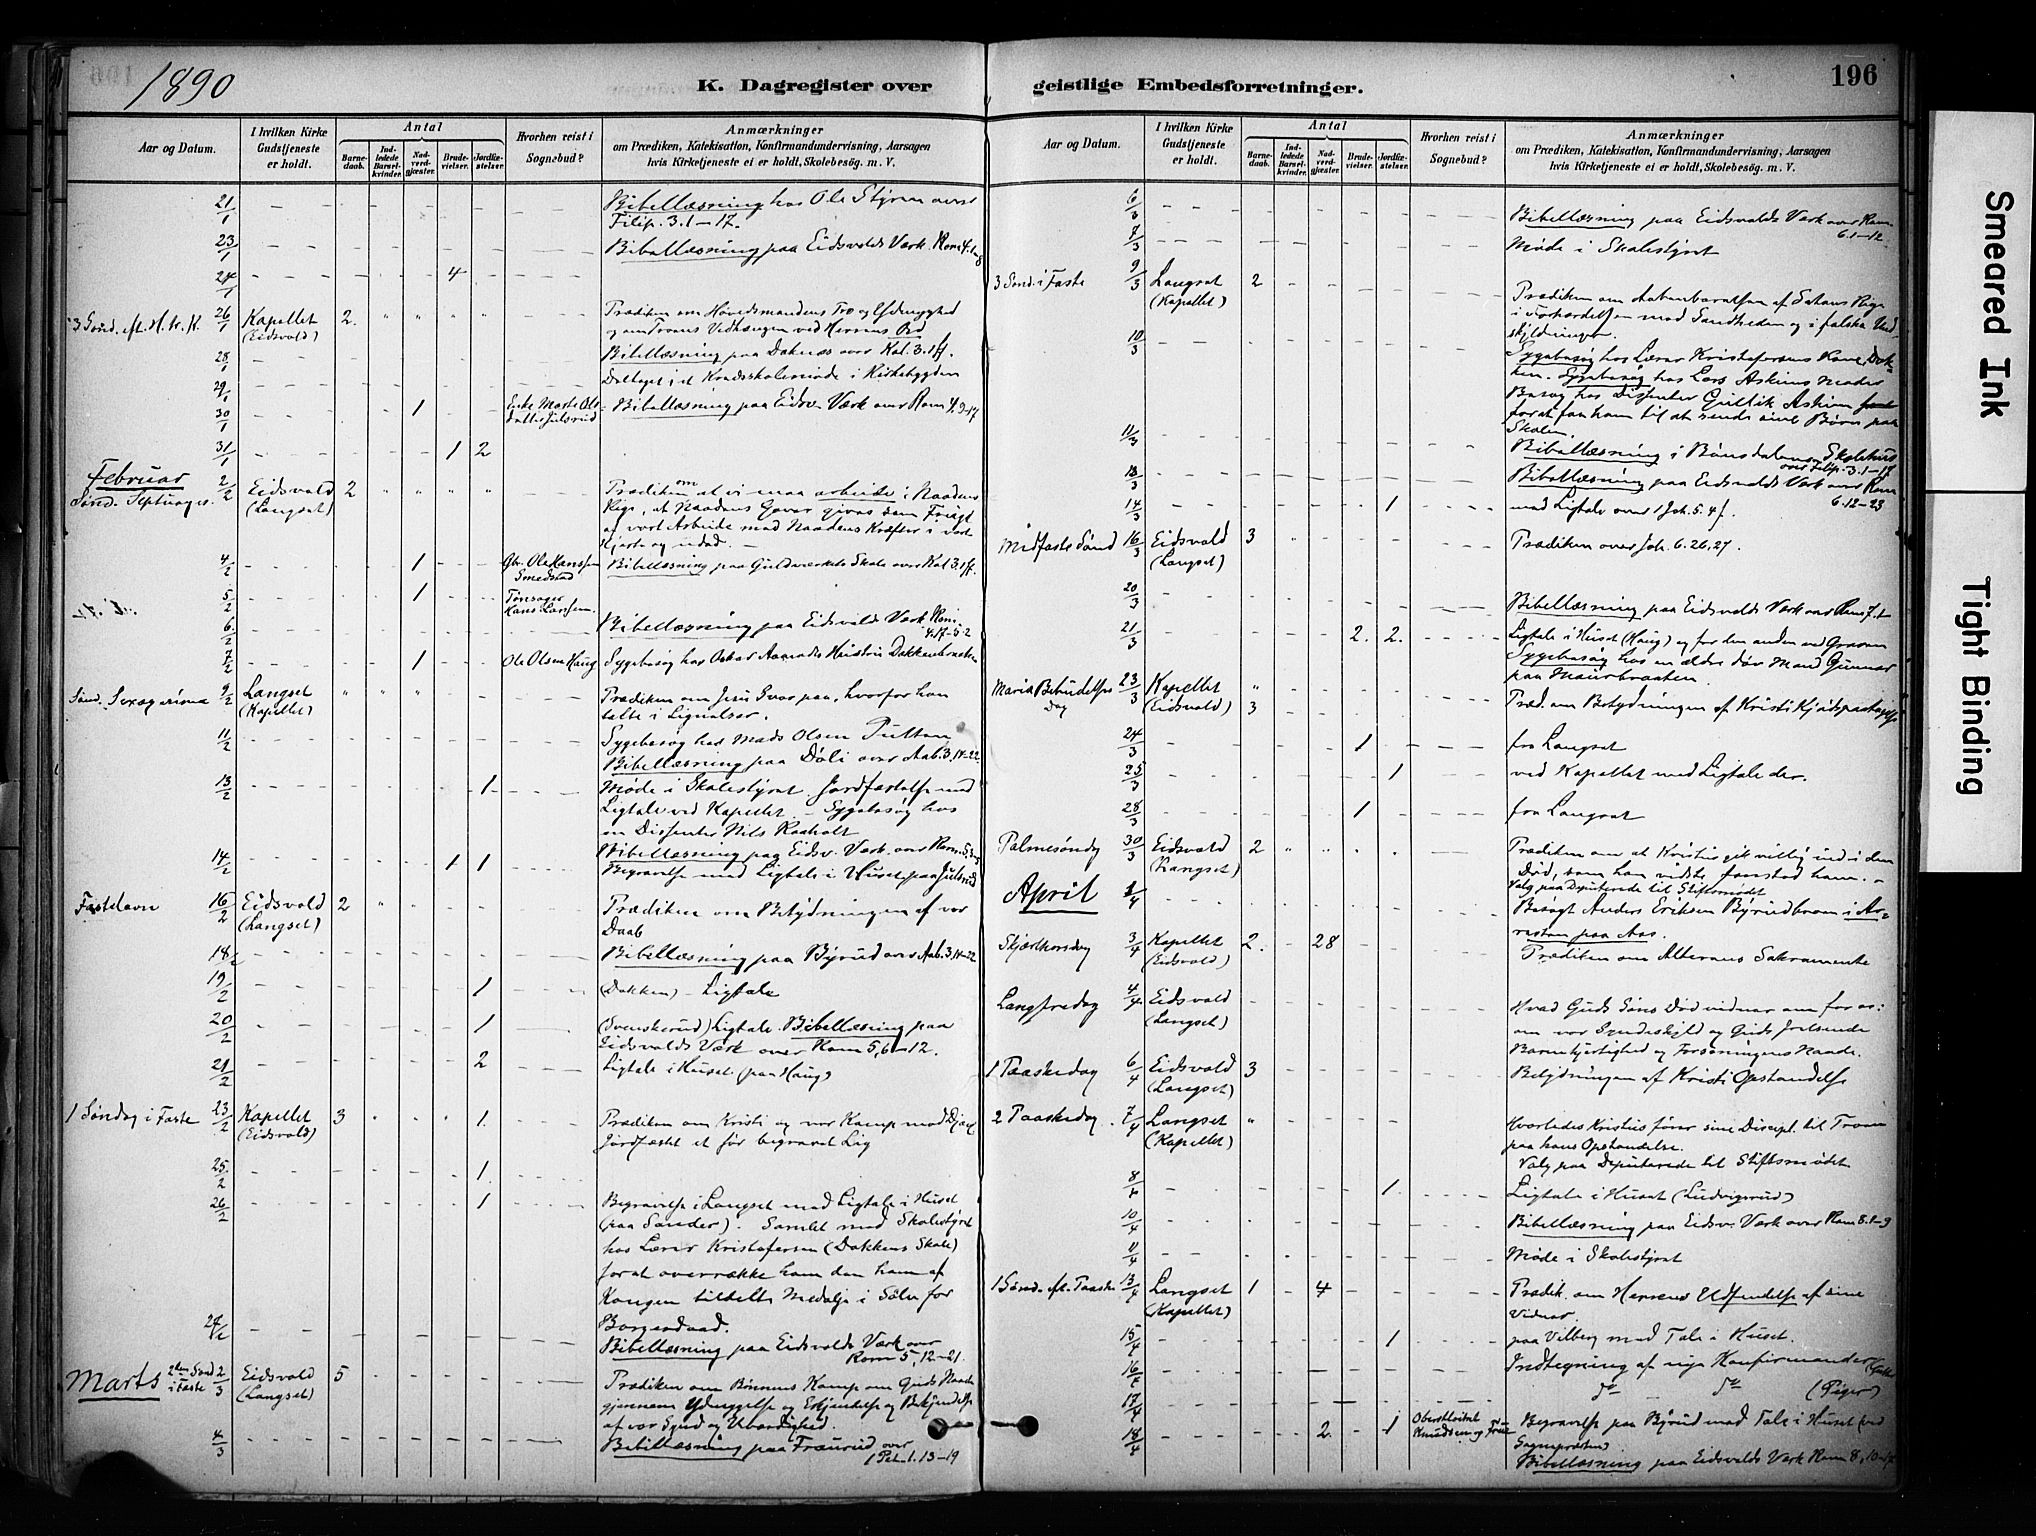 1890
K. Dagregister over
Aar og Datum.
I hvilken Kirke Gudstjeneste er holdt.
Antal
Barnedaab.
Indledede Barselkvinder.
Nadverdgjæster.
Brudevielser.
Jordfæstelser.
Hvorhen reist i Sognebud?
Anmærkninger
om Prædiken, Katekisation, Konfirmandundervisning, Aarsagen
hvis Kirketjeneste ei er holdt, Skolebesøg. m. V.
21/1 Bibellæsning hos Ole Styren over
Filip. 3.1-17.
23/1 Bibellæsning paa Eidsvolds Værk. Rom. 4.1-8
24/1 4
3 Sønd. eft. H. tr. K. 26/1 Kapellet 2. Prædiken om Høvedsmandens Tro og Ydmyghed
(Eidsvold) og om Troens Vedhængen ved Herrens Ord
28/1 Bibellæsning paa Doknæs over Kol. 3.1ff.
29/1 Deltaget i et Kredsskolemøde i Kirkebygden
30/1 1 Enke Marte Ols- Bibellæsning paa Eidsv. Værk over Rom 4.9-17
datter Julsrud
31/1 1 2
Februar
Sønd. Septuages. 2/2 Eidsvold 2 Prædiken om at vi maa arbeide i Naadens
(Langset) Rige, at Naadens Gaver gives som Frugt
af vort Arbeide med Naadens Kræfter i vort
Hjerte og udad.
4/2 1 Gbr. Ole Hanssen Bibellæsning paa Guldverkets Skole over Kol 3.1ff.
Smedstad
5/2 1 Tønsager
Hans Larsen.
6/2 Bibellæsning paa Eidsvolds Værk Rom.
4.17-5.2
7/2 1 Ole Olsen Haug Sygebesøg hos Oskar Hustru
Sønd. Sexagesima 9/2 Langset Prædiken om Jesu Svar paa, hvorfor han
(Kapellet) talte i Lignelser.
11/2 Sygebesøg hos Mads Olsen Putten
Bibellæsning paa Døli over Aab. 3.14-22
13/2 1 Møde i Skolestyret. Jordfæstelse med
Ligtale ved Kapellet. - Sygebesøg hos
en Dissenter Nils Raaholt
14/2 1 1 Bibellæsning paa Eidsv. Værk. over Rom. 5
Begravelse med Ligtale i Huset paa Julsrud
Fastelavn 16/2 Eidsvold 2 Prædiken om Betydningen af vor
(Langset) Daab
18/2 Bibellæsning paa Byrud over Aab. 3.14-22
19/2 1 (Dokken) - Ligtale
20/2 1 (Svenskerud) Ligtale. Bibellæsning paa
Eidsvolds Værk over Rom 5, 6-12.
21/2 2 Ligtale i Huset (paa Haug)
1 Søndag i Faste 23/2 Kapellet 3 1. Prædiken om Kristi og vor Kamp mod Djæv.
(Eidsvold) Jordfæstet et før begravet Lig
25/2 1.
26/2 1 Begravelse i Langset med Ligtale i Huset
(paa Sander). Samlet med Skolestyret
hos Lærer Kristofersen (Dokkens Skole)
for at overrække ham den ham af
Kongen tildelte Medalje i Sølv for
Borgerdaad.
27/2 Bibellæsning paa Eidsvolds Værk over
Rom 5, 12-21.
Marts 2den Sønd i Faste 2/3 Eidsvold 5 Prædiken om Bønnens Kamp om Guds Naade
(Langset) gjennem Ydmygelse og Erkjendelse og Bekjendelse
af vor Synd og Uværdighed.
4/3 Bibellæsning paa Fraurud over
1 Pet. 1. 13-19
geistlige Embedsforretninger.
196
Aar og Datum.
I hvilken Kirke Gudstjeneste er holdt.
Antal
Barnedaab.
Indledede Barselkvinder.
Nadverdgjæster.
Brudevielser.
Jordfæstelser.
Hvorhen reist i Sognebud?
Anmærkninger
om Prædiken, Katekisation, Konfirmandundervisning, Aarsagen
hvis Kirketjeneste ei er holdt, Skolebesøg. m. V.
6/3 Bibellæsning paa Eidsvolds Værk over Rom.
6.1-12.
7/3 Møde i Skolestyret
3 Sønd. i Faste 9/3 Langset 2 Prædiken om Aabenbarelsen af Satans Rige
(Kapellet) i Forhærdelsen mod Sandheden og i falske Und-
skyldninger.
10/3 Sygebesøg hos Lærer Kristofersens Kone, Dok-
ken. Sygebesøg hos Lars Askims Moder
Besøg hos Dissenter Gullik Askim
for at faa ham til at sende sine Børn paa
Skolen.
11/3 Bibellæsning i Bønsdalens Skolehus
over Filip. 3.1-17
13/3 Bibellæsning paa Eidsvolds Værk over Rom
6.12-23
14/3 1 med Ligtale over 1 Joh. 5.4f.
Midfaste Sønd 16/3 Eidsvold 3 Prædiken over Joh. 6.26,27.
(Langset)
20/3 Bibellæsning paa Eidsvolds Værk over Rom 7.1
21/3 2. 2. Ligtale i Huset (Haug) og for den anden ved Graven
Sygebesøg hos en ældre døv Mand Gunnar
paa Maurbraaten.
Maria Bebudelses Dag 23/3 Kapellet Præd. om Betydningen af Kristi Kjødspaatagelse
(Eidsvold) 3
24/3 1 fra Langset
25/3 1 ved Kapellet med Ligtale der.
28/3 1 fra Langset
Palmesøndag 30/3 Eidsvold 2 Prædiken om at Kristus gik villig ind i den
(Langset) Død, som han vidste forestod ham.
Valg paa Deputerede til Stiftsmødet
April 1/4 Besøgt Anders Eriksen Byrudbroen i Ar-
resten paa Aas.
Skjærthorsdag 3/4 Kapellet 2. 28 Prædiken om Alterens Sakramente
(Eidsvold)
Langfredag 4/4 Eidsvold Hvad Guds Søns Død vidner om for os:
(Langset) om vor Syndeskyld og Guds frelsende
Barmhjertighed og Forsoningens Naade.
1 Paaskedag 6/4 Eidsvold 3 Betydningen af Kristi Opstandelse
(Langset)
2 Paaskedag. 7/4 Langset Hvorledes Kristus fører sine Discipl. til Troen
(Kapellet) paa hans Opstandelse.
Valg paa Deputerede til Stiftsmødet
8/4 1 Ligtale i Huset (Ludvigsrud)
10/4 Bibellæsning paa Eidsv. Værk over Rom 8.1-9
11/4 Møde i Skolestyret
1 Sønd. eft. Paaske 13/4 Langset 1 4 Prædik. om Herrens Udsendelse af sine
(Kapellet) Vidner.
15/4 1 paa Vilberg med Tale i Huset.
16/4 Indtegning af nye Konfirmander (Gutter)
17/4 do - do (Piger)
18/4 2. 1 Oberstløitnt Knudsen og Frue Begravelse paa Byrud med Tale i Huset (ved
Sognepræsten)
Bibellæsning paa Eidsvolds Værk Rom 8, 10-17
Smeared Ink
Tight Binding